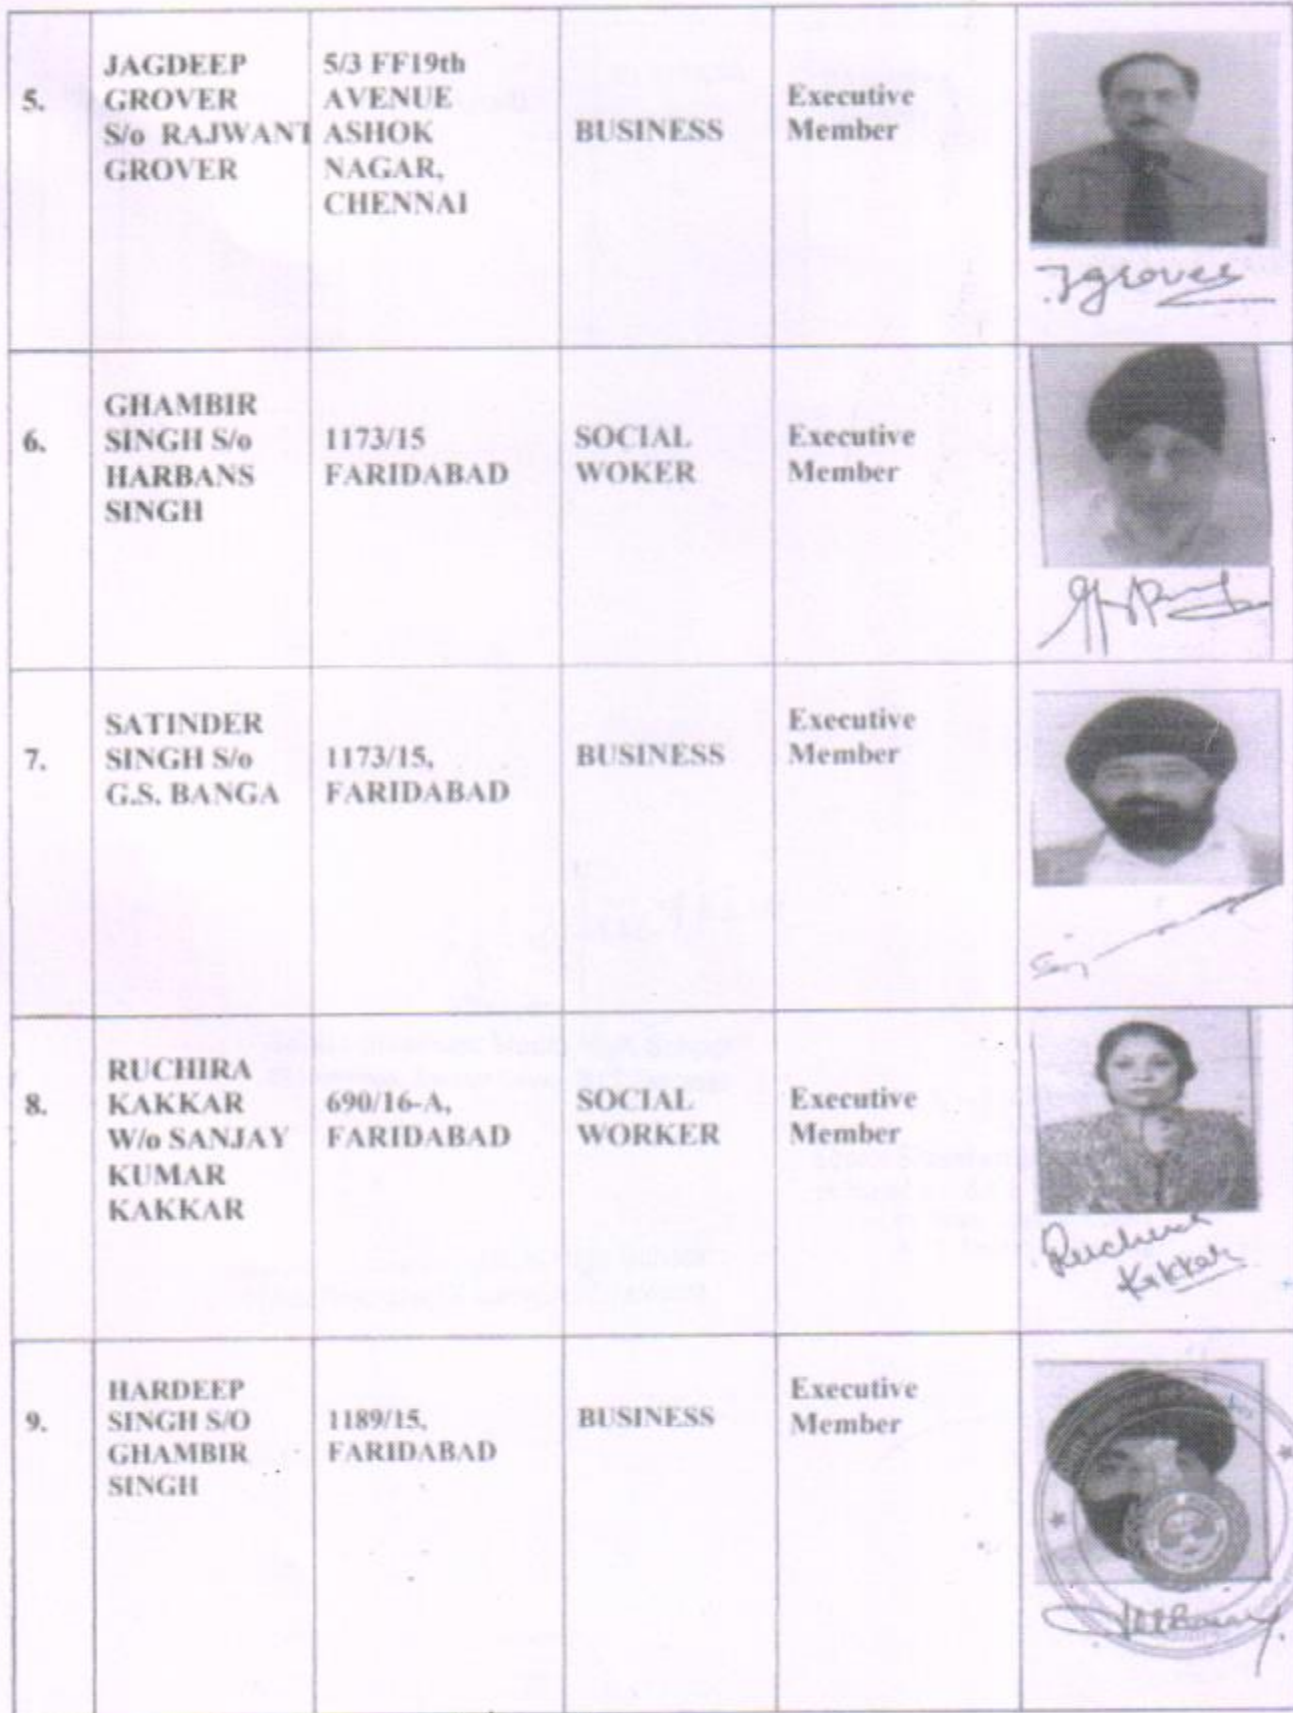 5.
JAGDEEP
GROVER
S/o RAJWANT
GROVER
5/3 FF19th
AVENUE
ASHOK
NAGAR,
CHENNAI
BUSINESS
Executive
Member
Jgrover
6.
GHAMBIR
SINGH S/o
HARBANS
SINGH
1173/15
FARIDABAD
SOCIAL
WOKER
Executive
Member
7.
SATINDER
SINGH S/o
G.S. BANGA
1173/15,
FARIDABAD
BUSINESS
Executive
Member
8.
RUCHIRA
KAKKAR
W/o SANJAY
KUMAR
KAKKAR
690/16-A,
FARIDABAD
SOCIAL
WORKER
Executive
Member
Ruchira
Kakkar
9.
HARDEEP
SINGH S/O
GHAMBIR
SINGH
1189/15,
FARIDABAD
BUSINESS
Executive
Member